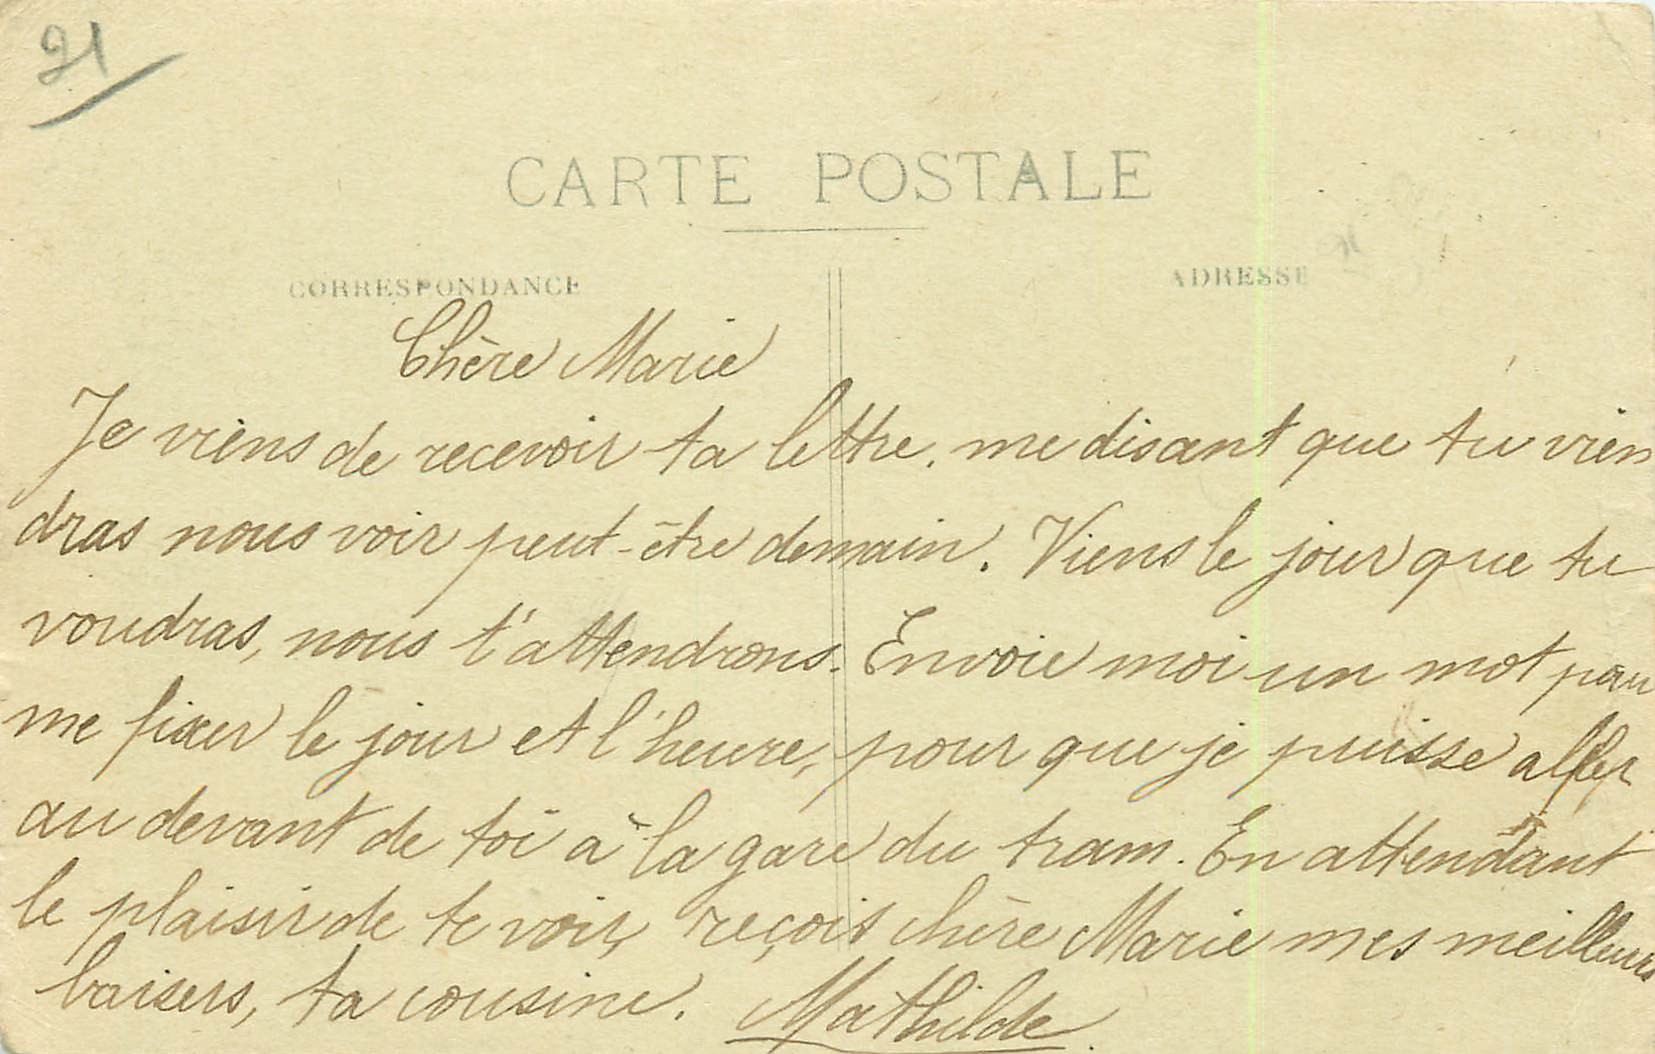 21
CARTE POSTALE
CORRESPONDANCE
ADRESSE
Chère Marie
Je viens de recevoir ta lettre, me disant que tu vien
dras nous voir peut-être demain. Viens le jour que tu
voudras, nous t'attendrons. Envoie moi un mot pour
me fixer le jour et l'heure, pour que je puisse aller
au devant de toi à la gare du tram. En attendant
le plaisir de te voir, reçois chère Marie mes meilleurs
baisers, ta cousine. Mathilde.